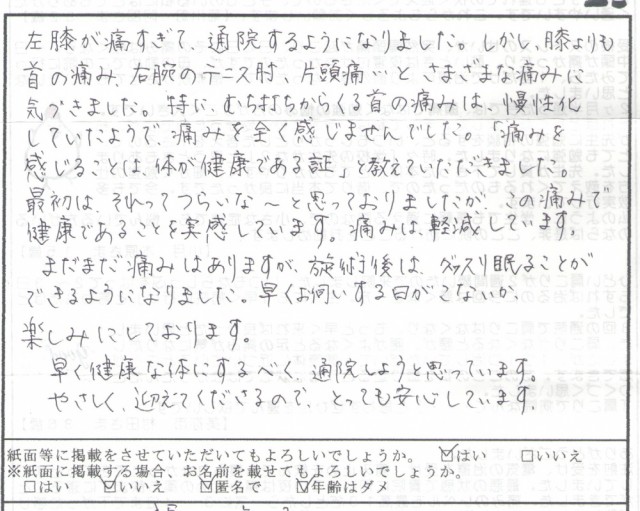 左膝が痛すぎて、通院するようになりました。しかし、膝よりも
首の痛み、右腕のテニス肘、片頭痛…と さまざまな痛みに
気づきました。特に、むち打ちからくる首の痛みは、慢性化
していたようで、痛みを全く感じませんでした。「痛みを
感じることは、体が健康である証」と教えていただきました。
最初は、それってつらいな～と思っておりましたが、この痛みで
健康であることを実感しています。痛みは、軽減しています。
まだまだ痛みはありますが、施術後は、グッスリ眠ることが
できるようになりました。早くお伺いする日がこないか、
楽しみにしております。
早く健康な体にするべく、通院しようと思っています。
やさしく、迎えてくださるので、とっても安心しています。
紙面等に掲載をさせていただいてもよろしいでしょうか。 ☑はい □いいえ
※紙面に掲載する場合、お名前を載せてもよろしいでしょうか。
□はい ☑いいえ ☑匿名で ☑年齢はダメ